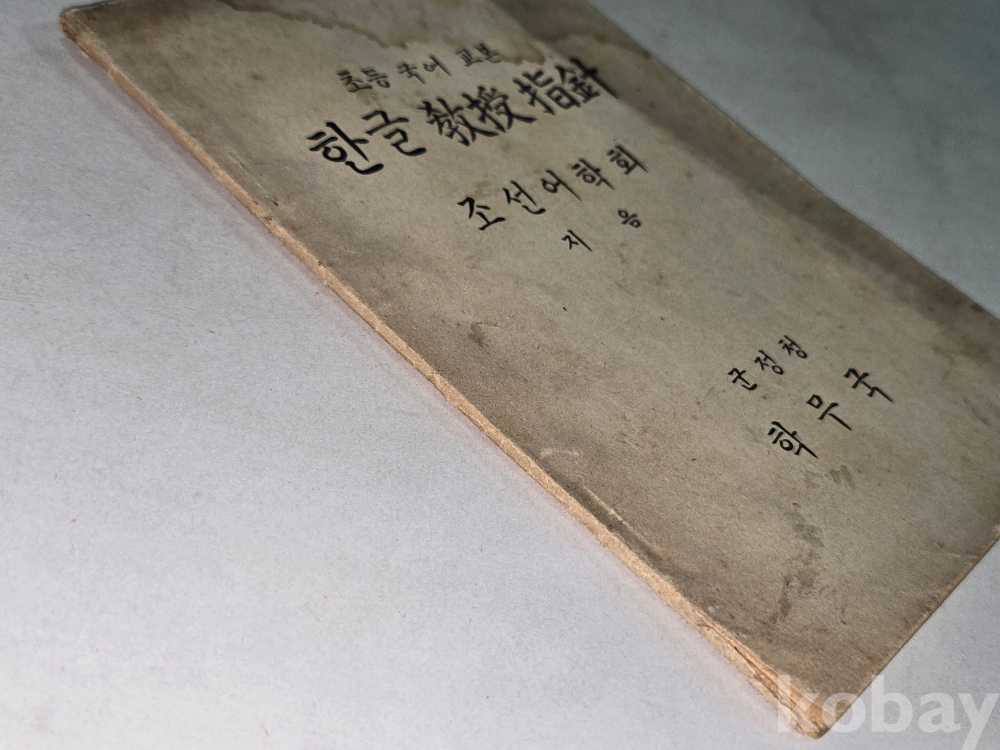 초등 국어 교본
한글 敎授指針
조선어학회
지음
군정청
학무국
kobay